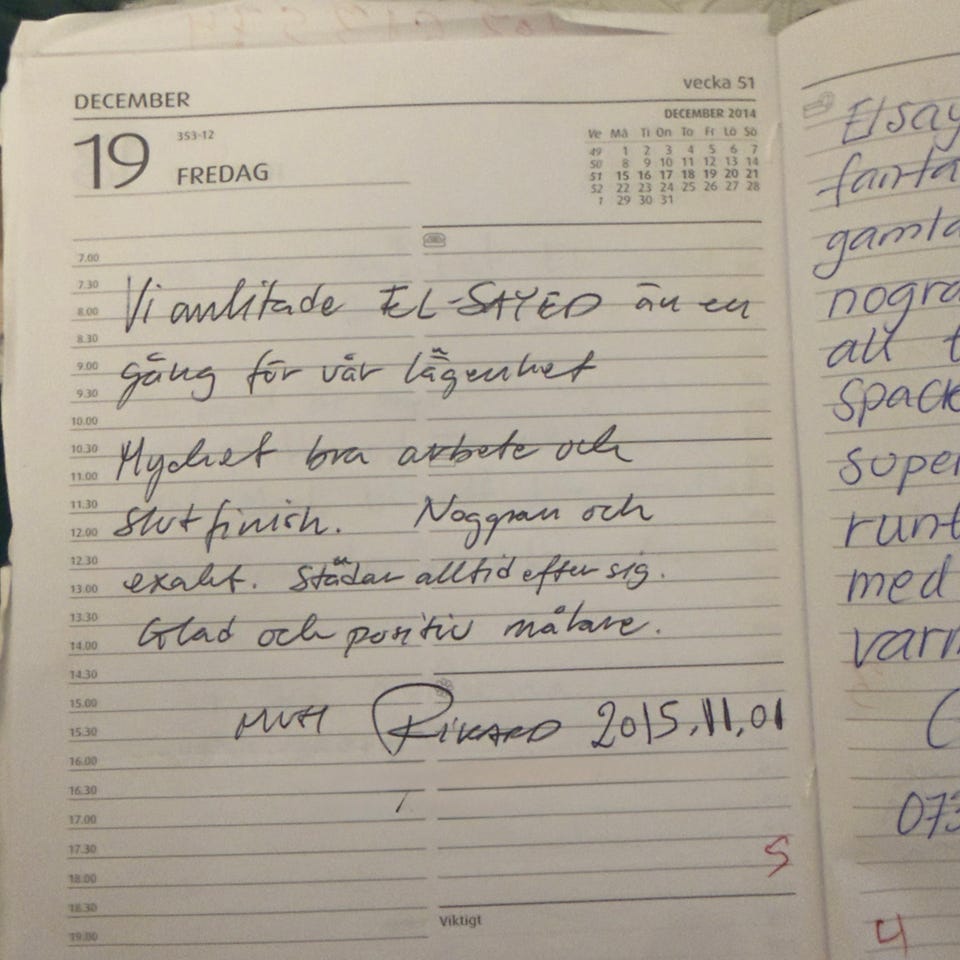 DECEMBER
vecka 51
19
353-12
FREDAG
DECEMBER 2014
Ve Må Ti On To Fr Lö Sö
49 1 2 3 4 5 6 7
50 8 9 10 11 12 13 14
51 15 16 17 18 19 20 21
52 22 23 24 25 26 27 28
1 29 30 31
7.00
7.30
8.00
8.30
9.00
9.30
10.00
10.30
11.00
11.30
12.00
12.30
13.00
13.30
14.00
14.30
15.00
15.30
16.00
16.30
17.00
17.30
18.00
18.30
19.00
Vi anlitade EL-SAYED än en
gång för vår lägenhet
Mycket bra arbete och
slutfinish. Noggran och
exakt. Städar alltid efter sig.
Glad och positiv målare.
MVH RIKARD 2015.11.01
5
Viktigt
Elsay
fanta
gamla
nogra
all t
spack
super
runt
med
varm
073
4